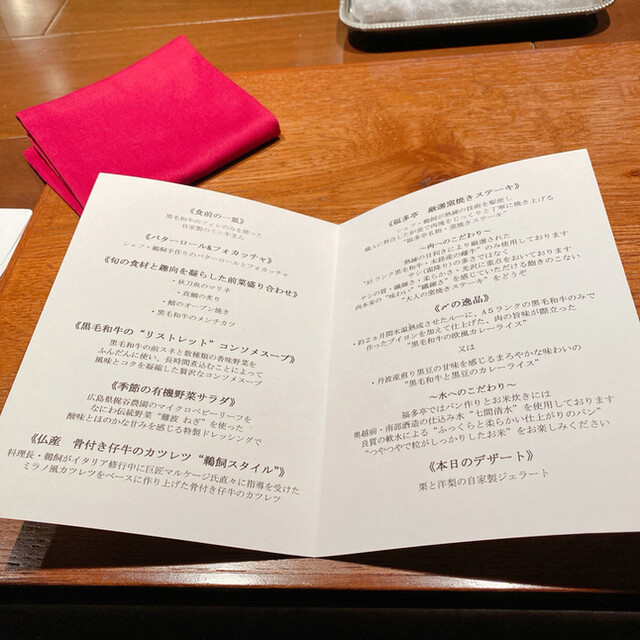 《食前の一皿》
黒毛和牛のフィレのみを使った
自家製のミニ牛まん
《バターロール&フォカッチャ》
シェフ・鵜飼手作りのバターロールとフォカッチャ
《旬の食材と趣向を凝らした前菜盛り合わせ》
・秋刀魚のマリネ
・真鯛の炙り
・鰆のオーブン焼き
・黒毛和牛のメンチカツ
《黒毛和牛の“リストレット”コンソメスープ》
黒毛和牛の前スネと数種類の香味野菜を
ふんだんに使い、長時間煮込むことによって
風味とコクを凝縮した贅沢なコンソメスープ
《季節の有機野菜サラダ》
広島県梶谷農園のマイクロベビーリーフを
なにわ伝統野菜“難波 ねぎ”を使った
酸味とほのかな甘みを感じる特製ドレッシングで
《仏産 骨付き仔牛のカツレツ“鵜飼スタイル”》
料理長・鵜飼がイタリア修行中に巨匠マルケージ氏直々に指導を受けた
ミラノ風カツレツをベースに作り上げた骨付き仔牛のカツレツ
《福多亭 厳選窯焼きステーキ》
シェフ・鵜飼が熟練の技術を駆使し
職人に特注した炉窯で肉塊をじっくりと丁寧に焼き上げる
“福多亭名物・窯焼きステーキ”
～肉へのこだわり～
熟練の目利きにより厳選された
“A5ランク黒毛和牛・未経産の雌牛”のみ使用しております
サシ(霜降り)の多さではなく
サシの質・繊細さ・柔らかさ・光沢に重点をおいております
肉本来の“味わい”“繊細さ”を感じていただける飽きのこない
“大人の窯焼きステーキ”をどうぞ
《〆の逸品》
・約2ヵ月間氷温熟成させたルーに、A5ランクの黒毛和牛のみで
作ったブイヨンを加えて仕上げた、肉の旨味が際立った
“黒毛和牛の欧風カレーライス”
又は
・丹波産煎り黒豆の甘味を感じるまろやかな味わいの
“黒毛和牛と黒豆のカレーライス”
～水へのこだわり～
福多亭ではパン作りとお米炊きには
奥越前・南部酒造の仕込み水“七間清水”を使用しております
良質の軟水による“ふっくらと柔らかい仕上がりのパン”
“つやつやで粒がしっかりしたお米”をお楽しみください
《本日のデザート》
栗と洋梨の自家製ジェラート